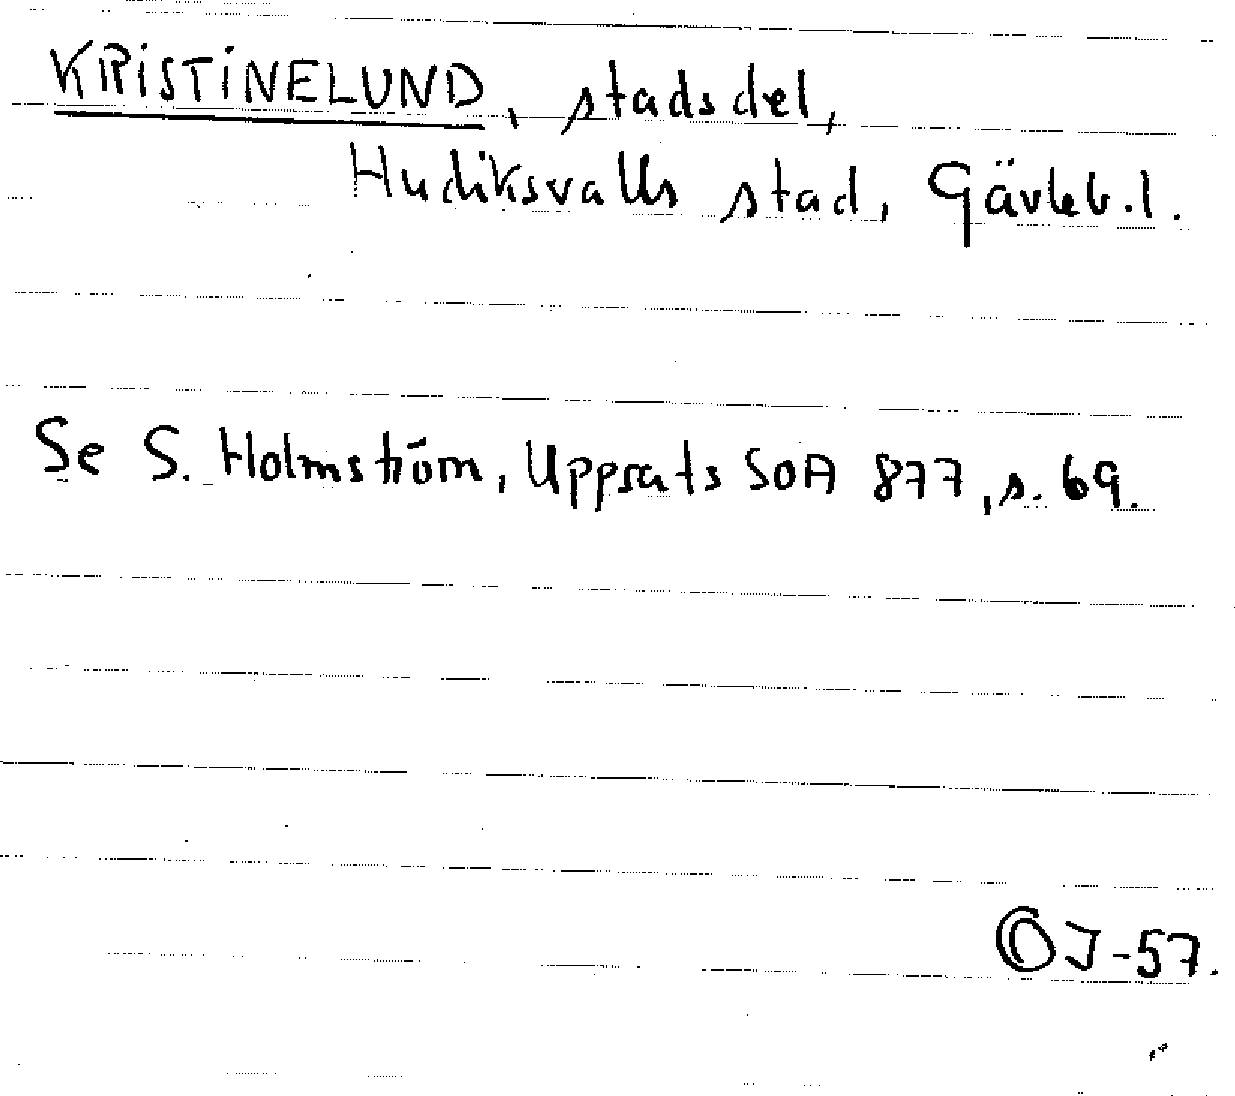 KRISTINELUND, stadsdel,
Hudiksvalls stad, Gävleb.l.
Se S. Holmström, Uppsats SOA 877, s. 69.
OJ-57.